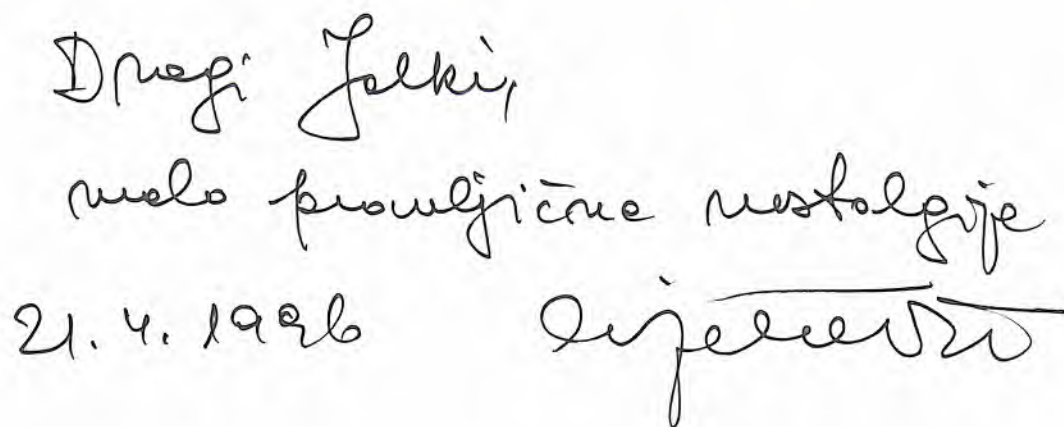 Dragi Jolki,
malo pravljične nostalgije
21. 4. 1996